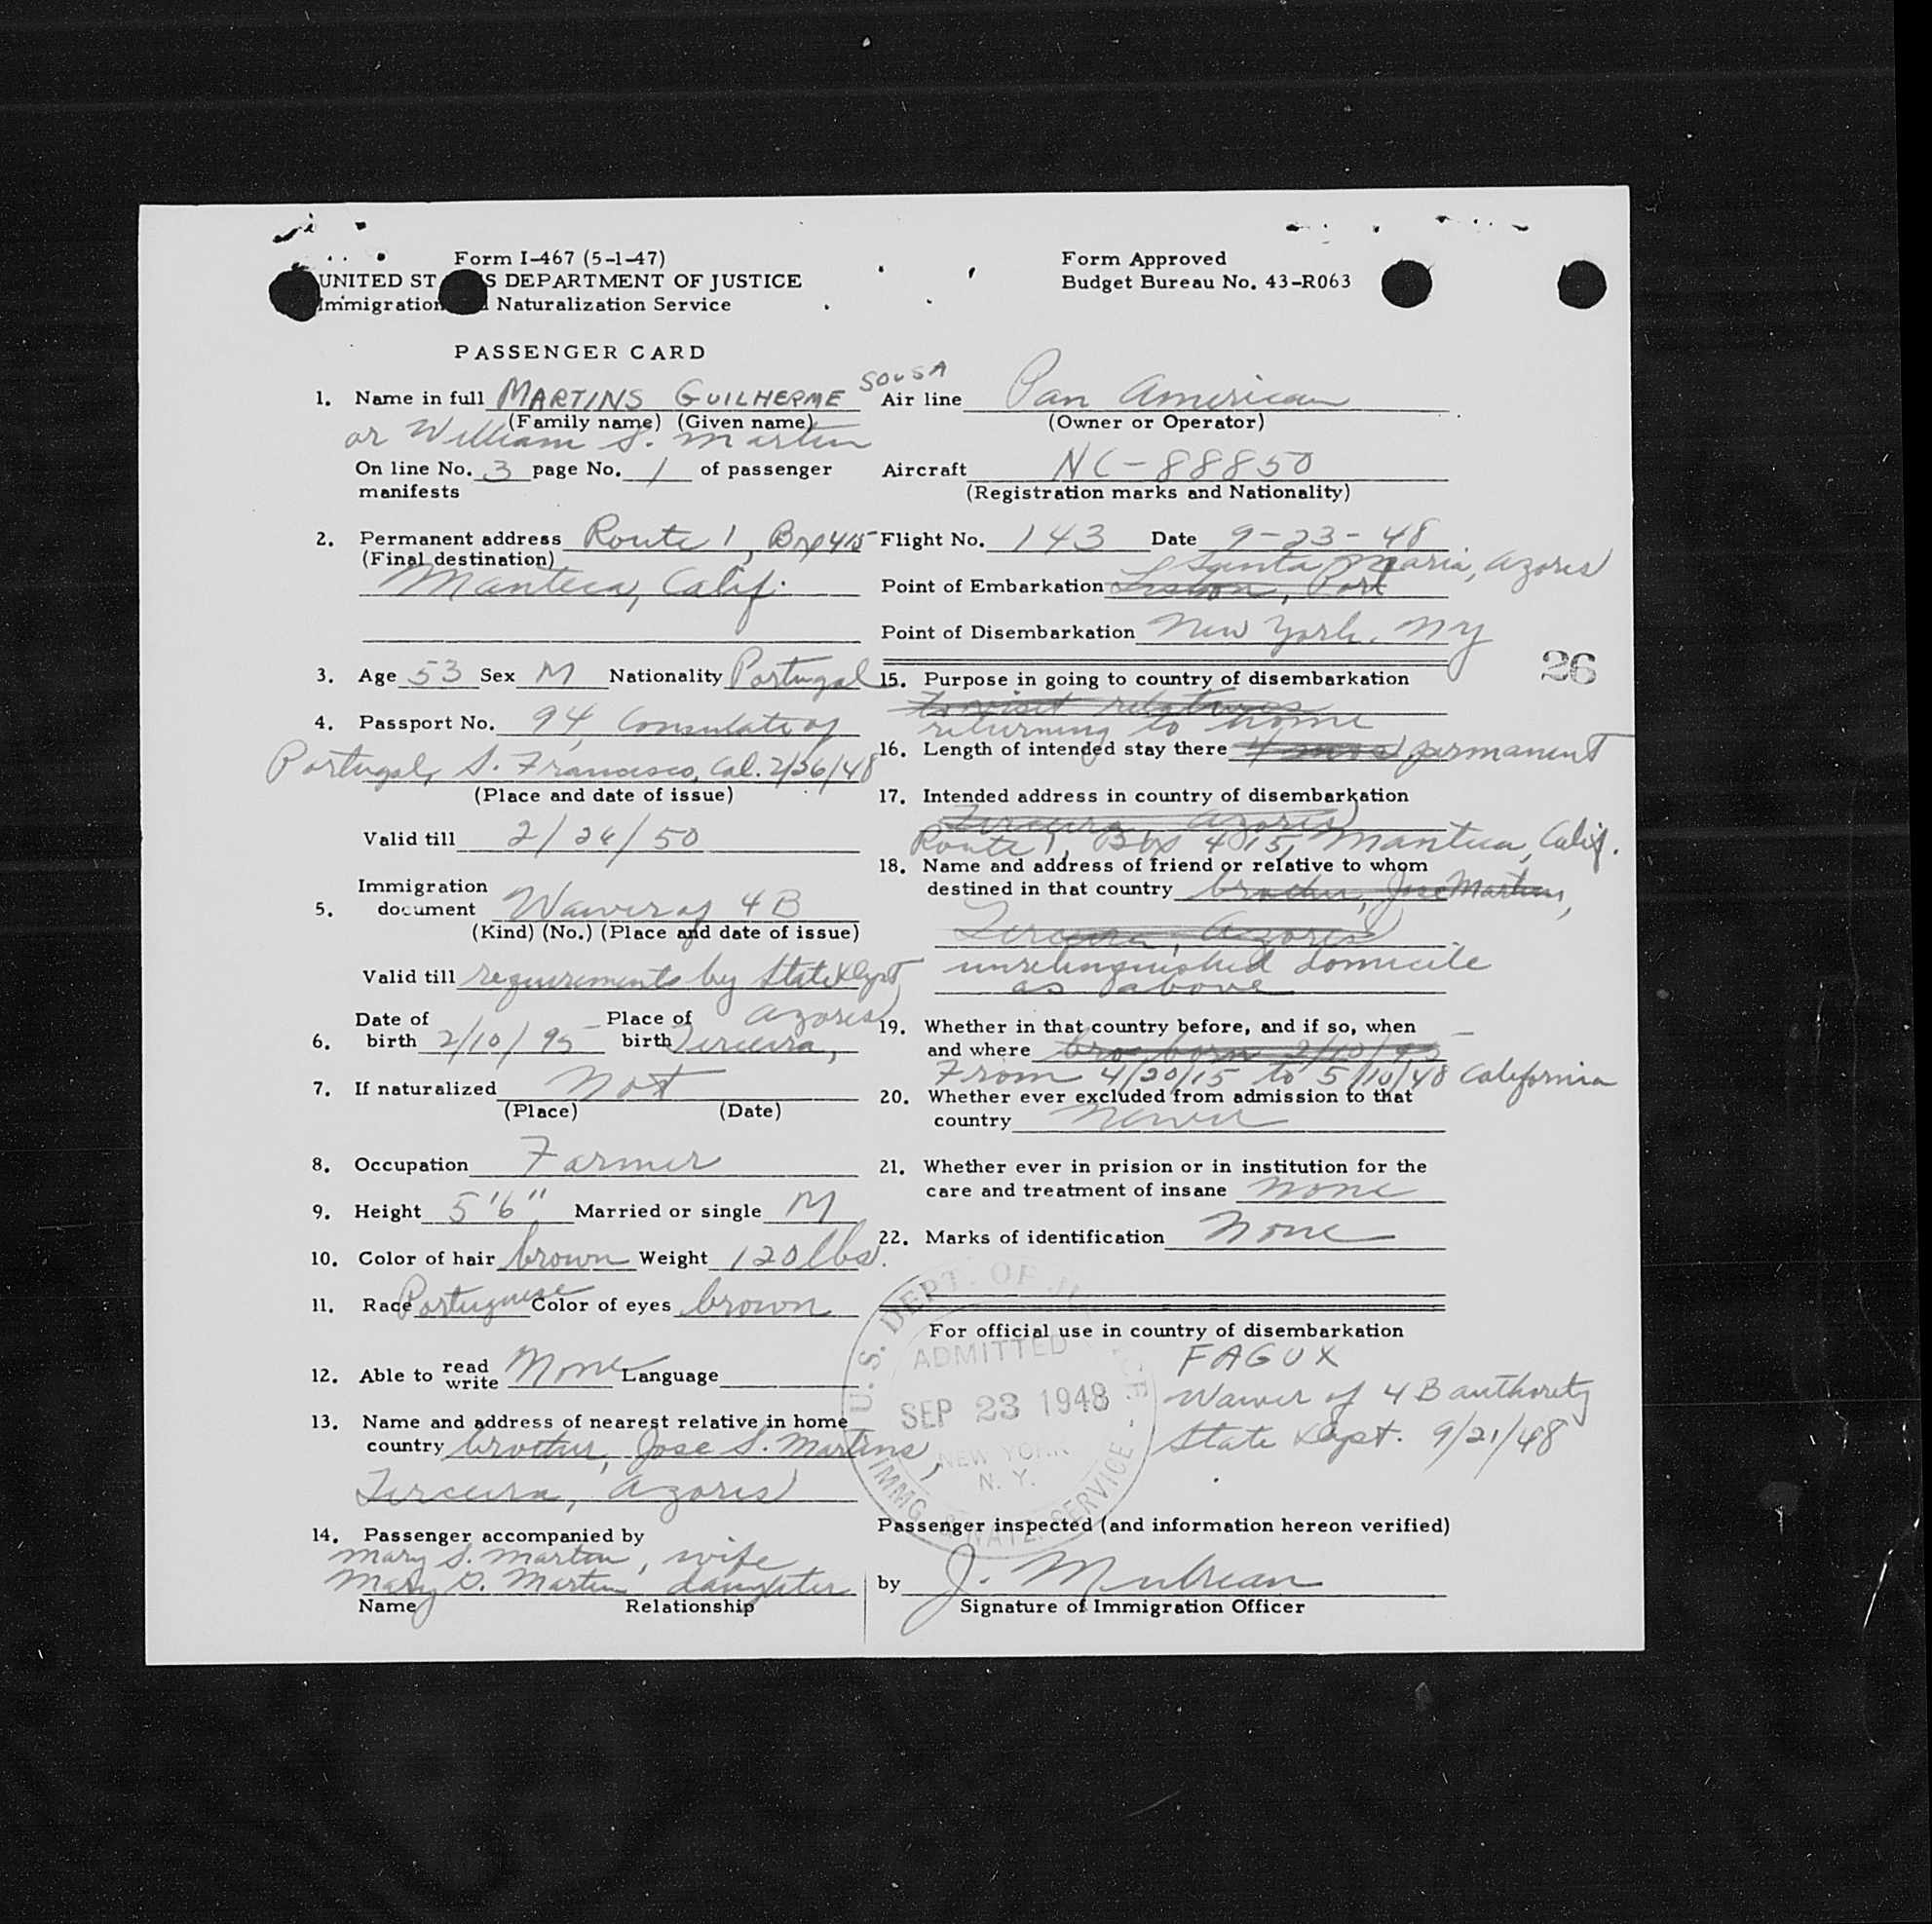 Form I-467 (5-1-47)
UNITED ST S DEPARTMENT OF JUSTICE
Immigration Naturalization Service
Form Approved
Budget Bureau No. 43-R063
PASSENGER CARD
1. Name in full MARTINS GUILHERME SOUSA
(Family name) (Given name)
or William S. Martin
On line No. 3 page No. 1 of passenger
manifests
2. Permanent address Route 1, Box 415
(Final destination)
Manteca, Calif.
3. Age 53 Sex M Nationality Portugal
4. Passport No. 94, Consulate of
Portugal, S. Francisco, Cal. 2/26/48
(Place and date of issue)
Valid till 2/26/50
Immigration
5. document Waiver of 4B
(Kind) (No.) (Place and date of issue)
Valid till requirements by State Dept
Date of Place of Azores
6. birth 2/10/95 birth Terceira,
7. If naturalized Not
(Place) (Date)
8. Occupation Farmer
9. Height 5'6" Married or single M
10. Color of hair brown Weight 120 lbs.
11. Race Portuguese Color of eyes brown
12. Able to read write None Language
13. Name and address of nearest relative in home
country brother, Jose S. Martins,
Terceira, Azores
14. Passenger accompanied by
Mary S. Martin, wife
Mary D. Martin daughter
Name Relationship
Air line Pan American
(Owner or Operator)
Aircraft NC-88850
(Registration marks and Nationality)
Flight No. 143 Date 9-23-48
Santa Maria, Azores
Point of Embarkation Lisbon, Port
Point of Disembarkation New York, NY
26
15. Purpose in going to country of disembarkation
to visit relatives
returning to home
16. Length of intended stay there 4 mos permanent
17. Intended address in country of disembarkation
Terceira, Azores
Route 1, Box 415, Manteca, Calif.
18. Name and address of friend or relative to whom
destined in that country brother, Jose Martins,
Terceira, Azores
unrelinquished domicile
as above
19. Whether in that country before, and if so, when
and where born 2/10/95
From 4/20/15 to 5/10/48 California
20. Whether ever excluded from admission to that
country Never
21. Whether ever in prision or in institution for the
care and treatment of insane None
22. Marks of identification None
For official use in country of disembarkation
FAGUX
Waiver of 4B authority
State Dept. 9/21/48
U.S. DEPT. OF JUSTICE
ADMITTED
SEP 23 1948
NEW YORK
N. Y.
IMMG. & NATZ. SERVICE
Passenger inspected (and information hereon verified)
by J.
Signature of Immigration Officer